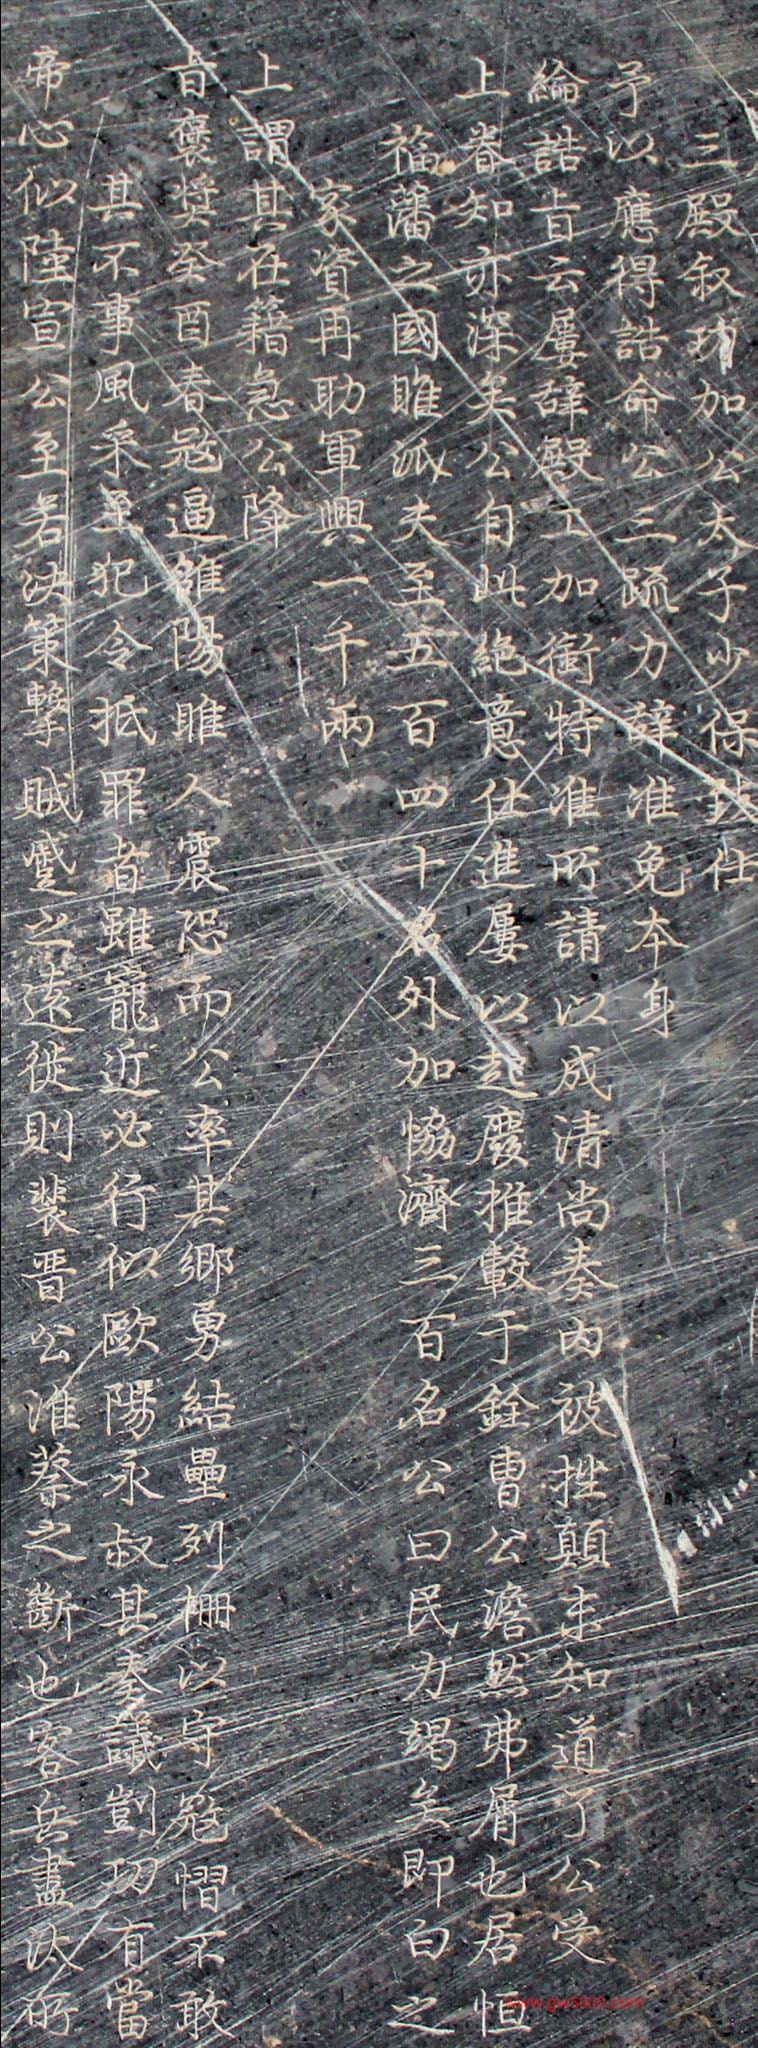 三殿叙功加公太子少保致仕
予以應得誥命公三疏力辞准免本身
綸誥旨云屢辞殿工加銜特准所請以成清尚奏內被挫顛末知道了公受
上眷知亦深矣公自此絶意仕進屢以起廢推轂于銓曹公澹然弗屑也居恒
福藩之國睢派夫至五百四十名外加協濟三百名公曰民力竭矣即白之
家資再助軍興一千兩
上謂其在籍急公降
旨褒奬癸酉春冦逼雒陽睢人震恐而公率其鄉勇結壘列柵以守冦慴不敢
其不事風采至犯令抵罪者雖寵近必行似歐陽永叔其奏議剴切有當
帝心似陸宣公至若决策擊賊蹙之遠徙則裴晋公淮蔡之斷也客兵盡汰所
www.gw8000.com